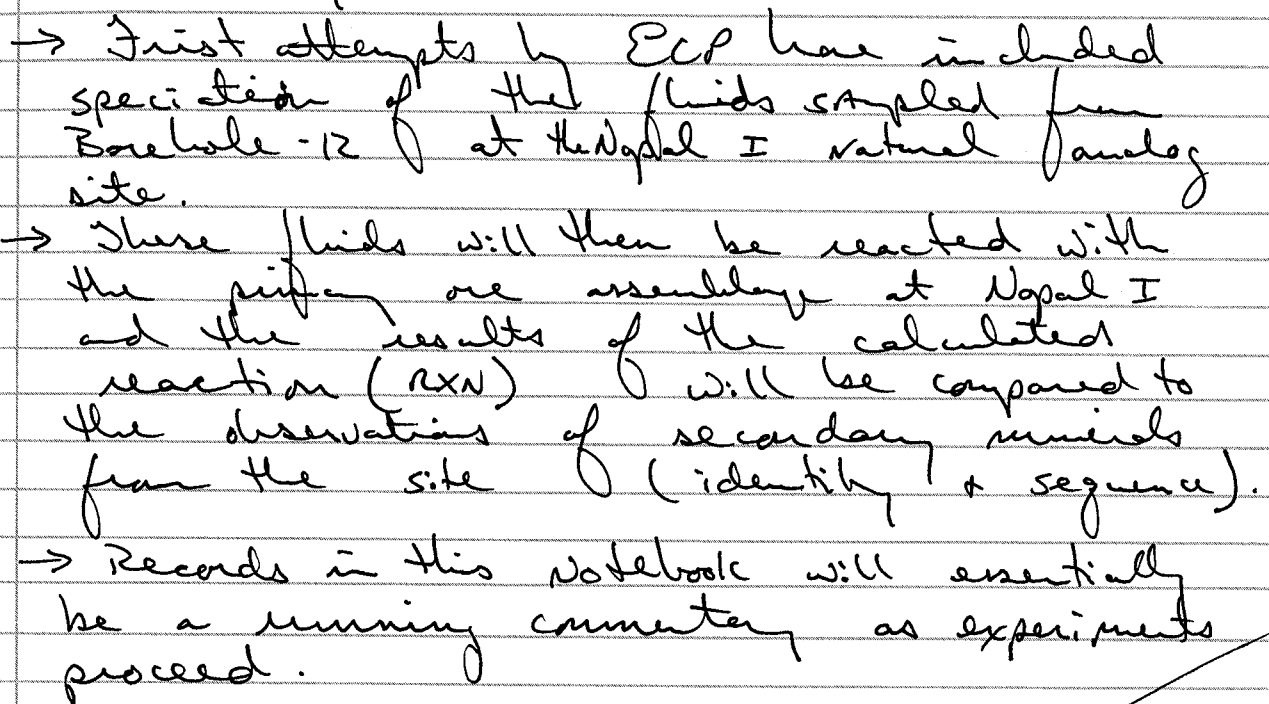 → First attempts by ECP have included
speciation of the fluids sampled from
Borehole-12 at the Nopal I natural analog
site.
→ These fluids will then be reacted with
the primary ore assemblage at Nopal I
and the results of the calculated
reaction (RXN) will be compared to
the observations of secondary minerals
from the site (identity & sequence).
→ Records in this Notebook will essentially
be a running commentary as experiments
proceed.